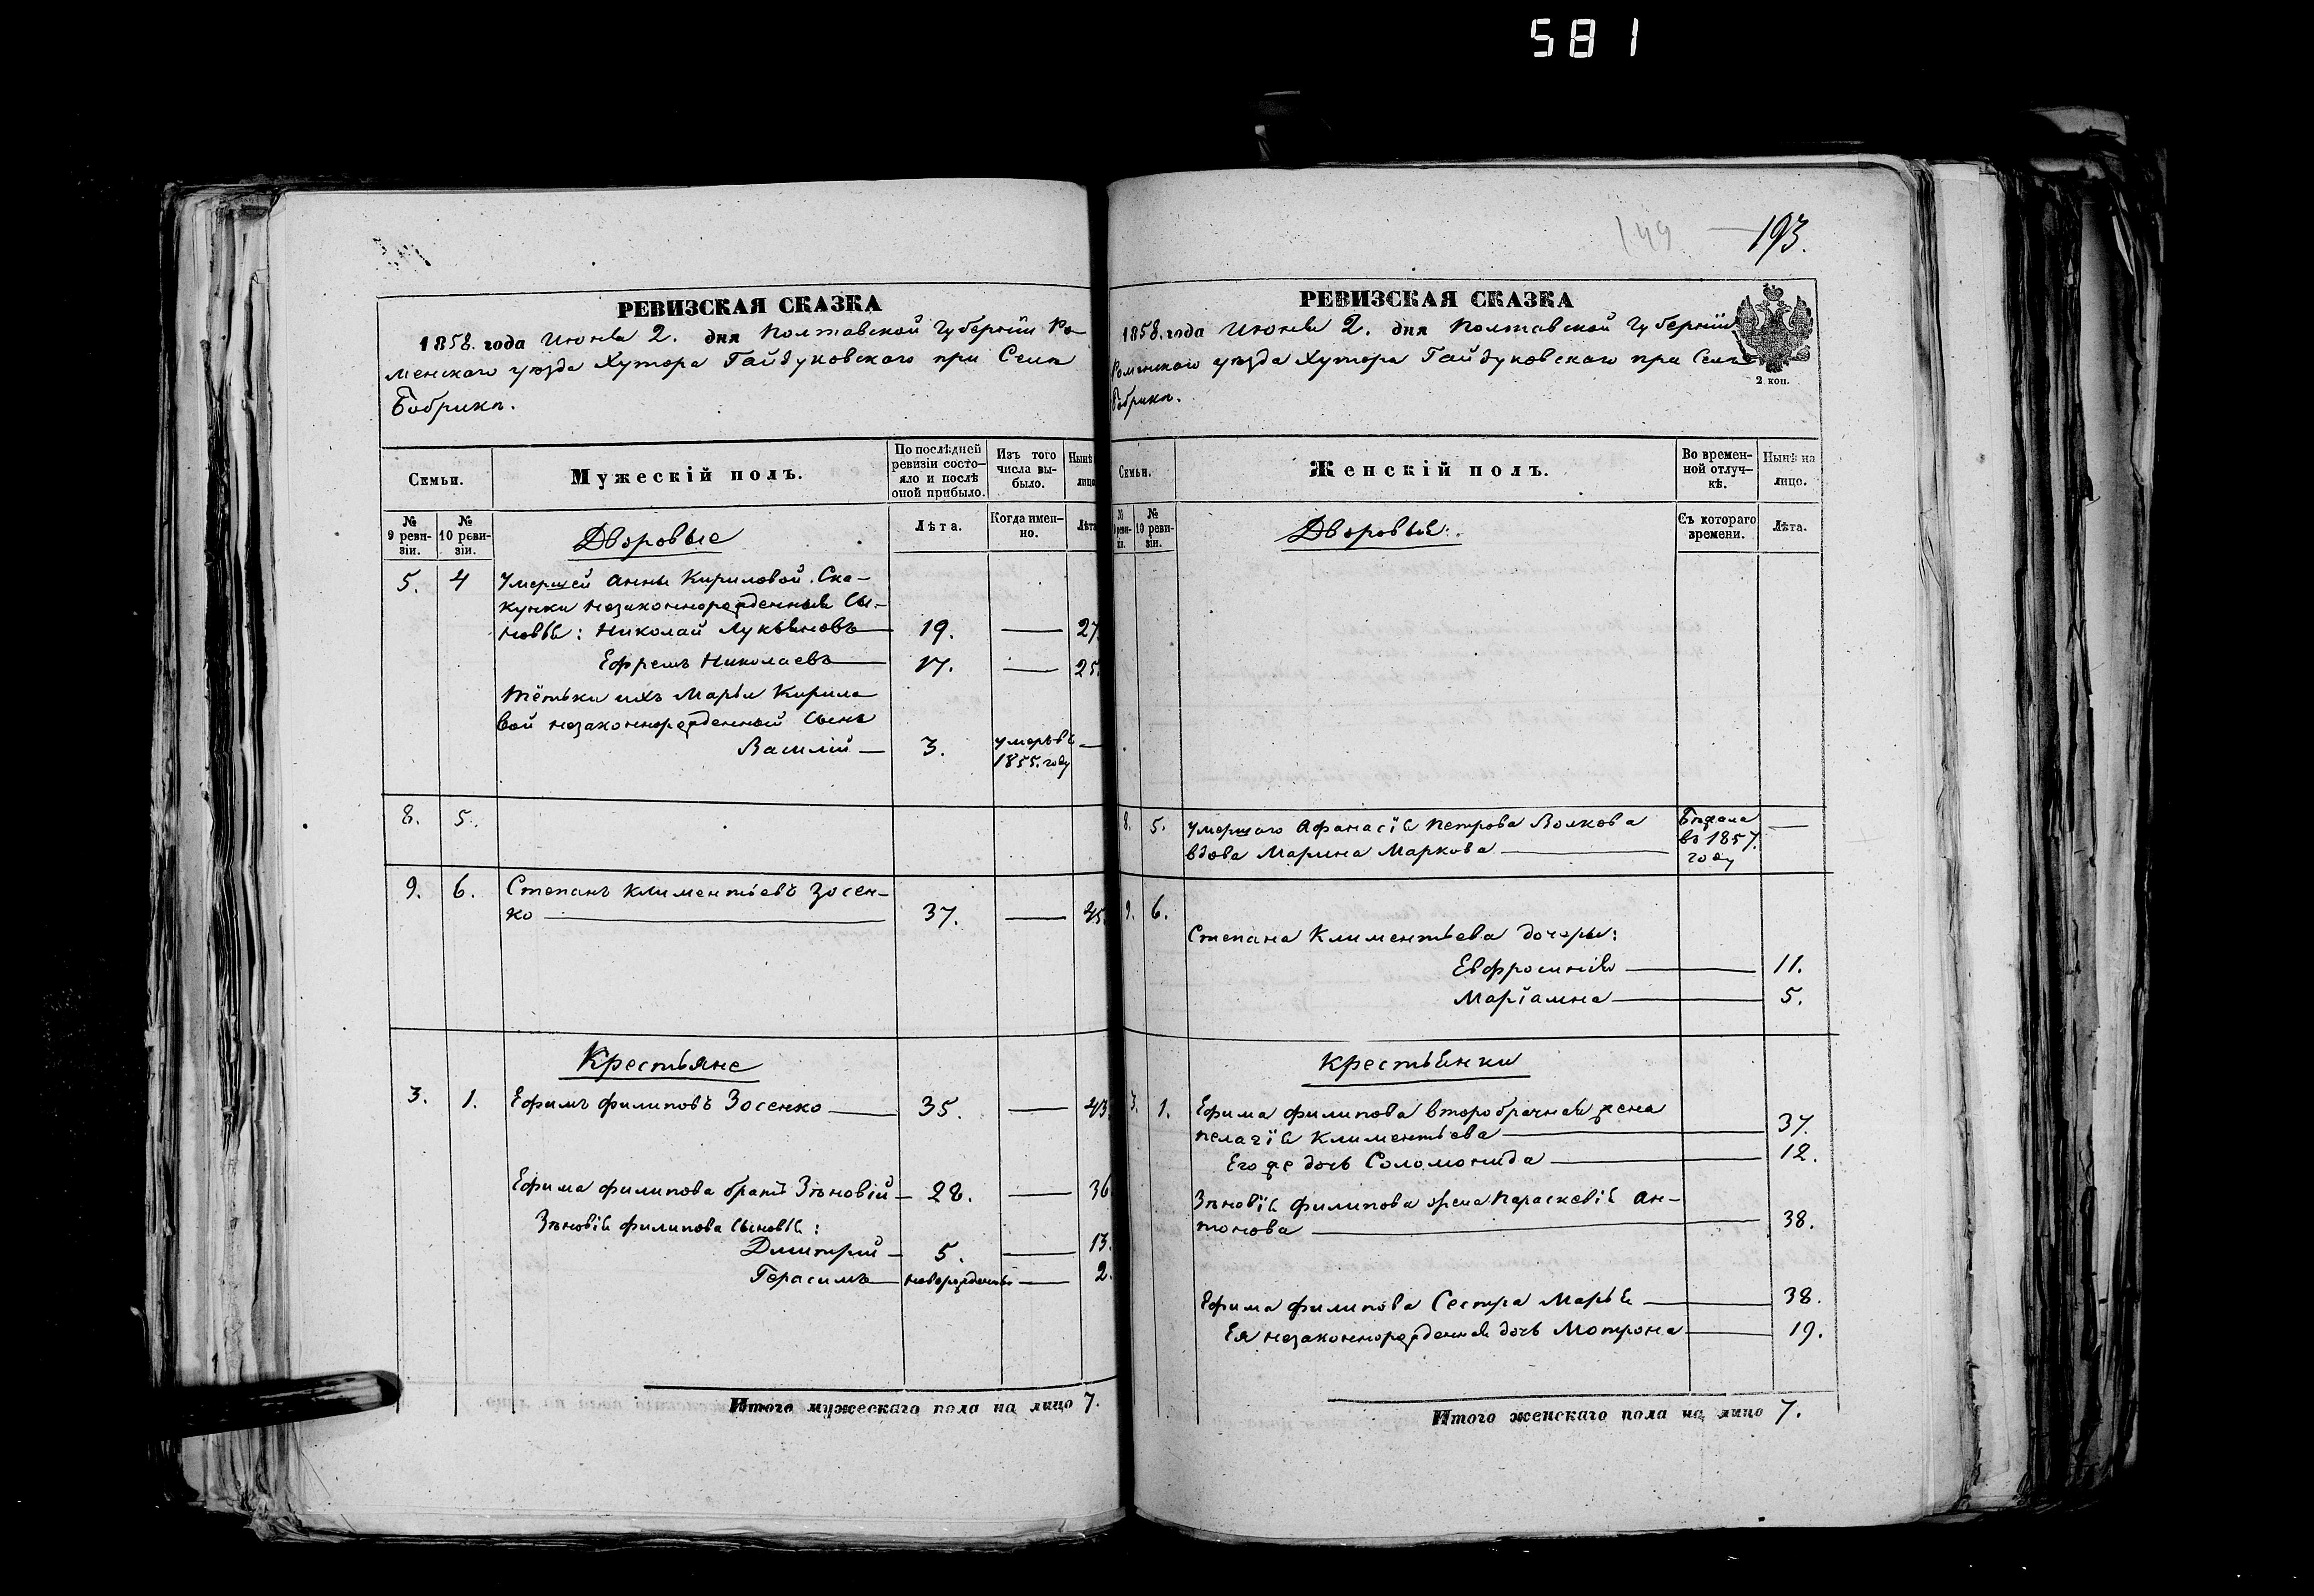 581
149 — 193.
РЕВИЗСКАЯ СКАЗКА
1858. года Июня 2. дня Полтавской Губернiи Ро-
менскаго уѣзда Хутора Гайдуковскаго при Селѣ
Бобрикѣ.
Семьи.
Мужескiй полъ.
По послѣдней
ревизiи состо-
яло и послѣ
оной прибыло.
Изъ того
числа вы-
было.
Нынѣ
лицо
№
9 реви-
зiи.
№
10 реви-
зiи.
Дворовые
Лѣта.
Когда имен-
но.
Лѣта
5. 4 Умершей Анны Кириловой Ска-
кунки незаконнорожденные Сы-
новья: Николай Лукьяновъ — 19. — 27.
Ефремъ Николаевъ — 17. — 25.
Тётьки ихъ Марьи Кирило
вой незаконнорожденный Сынъ
Василiй — 3. умеръ въ —
1855. году
8. 5.
9. 6. Степанъ Климентьевъ Зосен-
ко — 37. — 45
Крестьяне
3. 1. Ефимъ Филиповъ Зосенко — 35. — 43
Ефима Филипова братъ Зѣновiй — 28. — 36
Зѣновiя Филипова Сыновья:
Дмитрiй — 5. — 13.
Герасимъ — новорожденъ — 2.
Итого мужескаго пола на лицо 7.
РЕВИЗСКАЯ СКАЗКА
1858. года Июня 2. дня Полтавской Губернiи
Роменскаго уѣзда Хутора Гайдуковскаго при Селѣ
Бобрикѣ.
2 коп.
Семьи.
Женскiй полъ.
Во времен-
ной отлуч-
кѣ.
Нынѣ на
лицо.
№
9 реви-
зiи.
№
10 реви-
зiи.
Дворовыя.
Съ котораго
времени.
Лѣта.
8. 5. Умершаго Афанасiя Петрова Волкова
вдова Марина Маркова — Бѣжала
въ 1857.
году —
9. 6.
Степана Климентьева дочеры:
Евфросинiя — 11.
Марiамна — 5.
Крестьянки
3. 1. Ефима Филипова второбрачная жена
Пелагiя Климентьева — 37.
Его же дочь Соломонида — 12.
Зѣновiя Филипова жена Параскевiя Ан-
тонова — 38.
Ефима Филипова Сестра Марья — 38.
Ея незаконнорожденная дочь Мотрона — 19.
Итого женскаго пола на лицо 7.